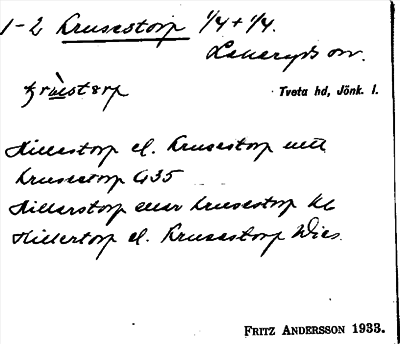 1-2 Krusestorp 1/4 + 1/4.
Lekeryds sn.
krùsterp
Tveta hd, Jönk. l.
Hillestorp el. Krusestorp utt
Krusetorp G35
Hillerstorp eller Krusestorp Kk
Hillertorp el. Krusestorp Wies.
FRITZ ANDERSSON 1933.